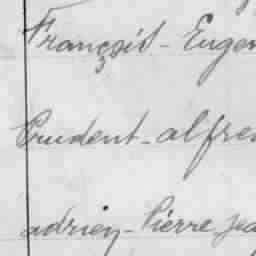 François - Eugen
Prudent - alfre
adrien - Pierre Jea